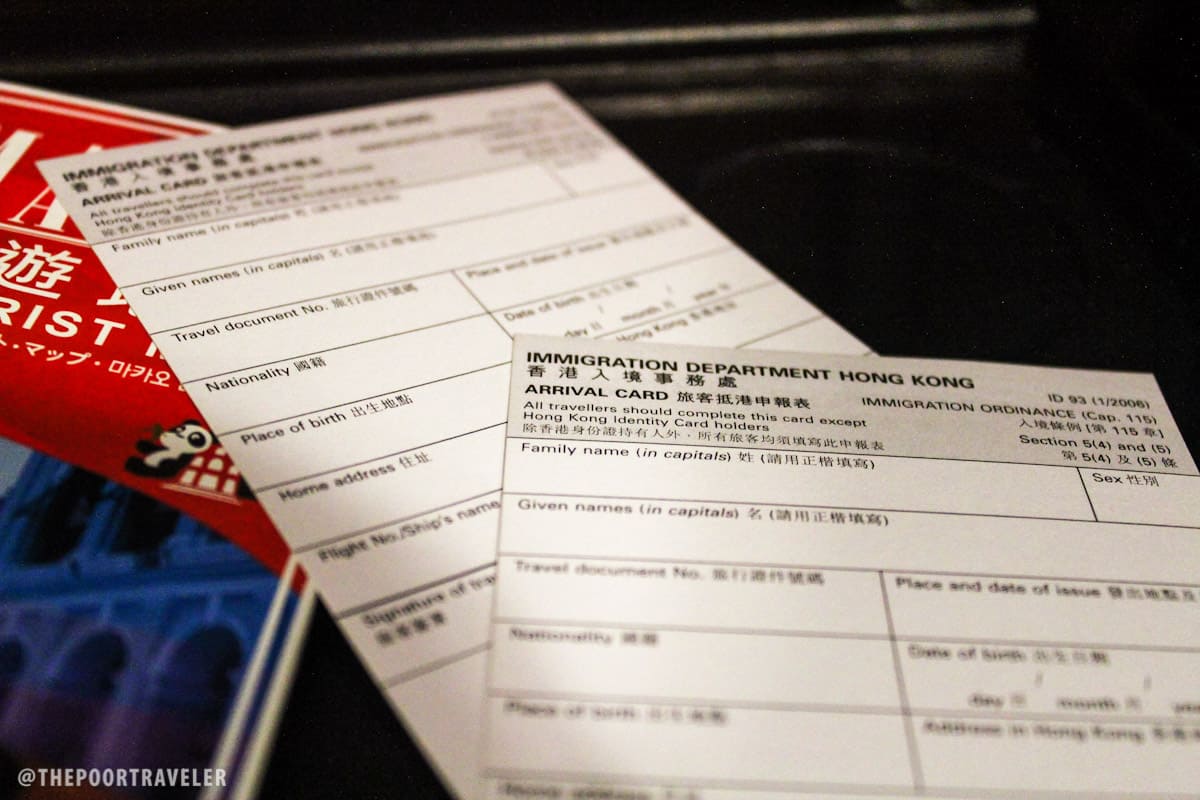 遊
RIST
ト・マップ・마카오
IMMIGRATION DEPARTMENT HONG KONG
香港入境事務處
ARRIVAL CARD 旅客抵港申報表
All travellers should complete this card except
Hong Kong Identity Card holders
除香港身份證持有人外，所有旅客均須填寫此申報表
Family name (in capitals) 姓 (請用正楷填寫)
Given names (in capitals) 名 (請用正楷填寫)
Travel document No. 旅行證件號碼
Place and date of issue
Nationality 國籍
Date of birth 出生日期
day 日 month 月 year
Hong Kong
Place of birth 出生地點
Home address 住址
Flight No./Ship's name
Signature of
IMMIGRATION DEPARTMENT HONG KONG
香港入境事務處
ID 93 (1/2006)
ARRIVAL CARD 旅客抵港申報表
IMMIGRATION ORDINANCE (Cap. 115)
All travellers should complete this card except
入境條例 [第 115 章]
Hong Kong Identity Card holders
Section 5(4) and (5)
除香港身份證持有人外，所有旅客均須填寫此申報表
第 5(4) 及 (5) 條
Family name (in capitals) 姓 (請用正楷填寫)
Sex 性別
Given names (in capitals) 名 (請用正楷填寫)
Travel document No. 旅行證件號碼
Place and date of issue 發出地點及
Nationality 國籍
Date of birth 出生日期
day 日 month 月
Place of birth 出生地點
Address in Hong Kong
Home address 住址
@THEPOORTRAVELER